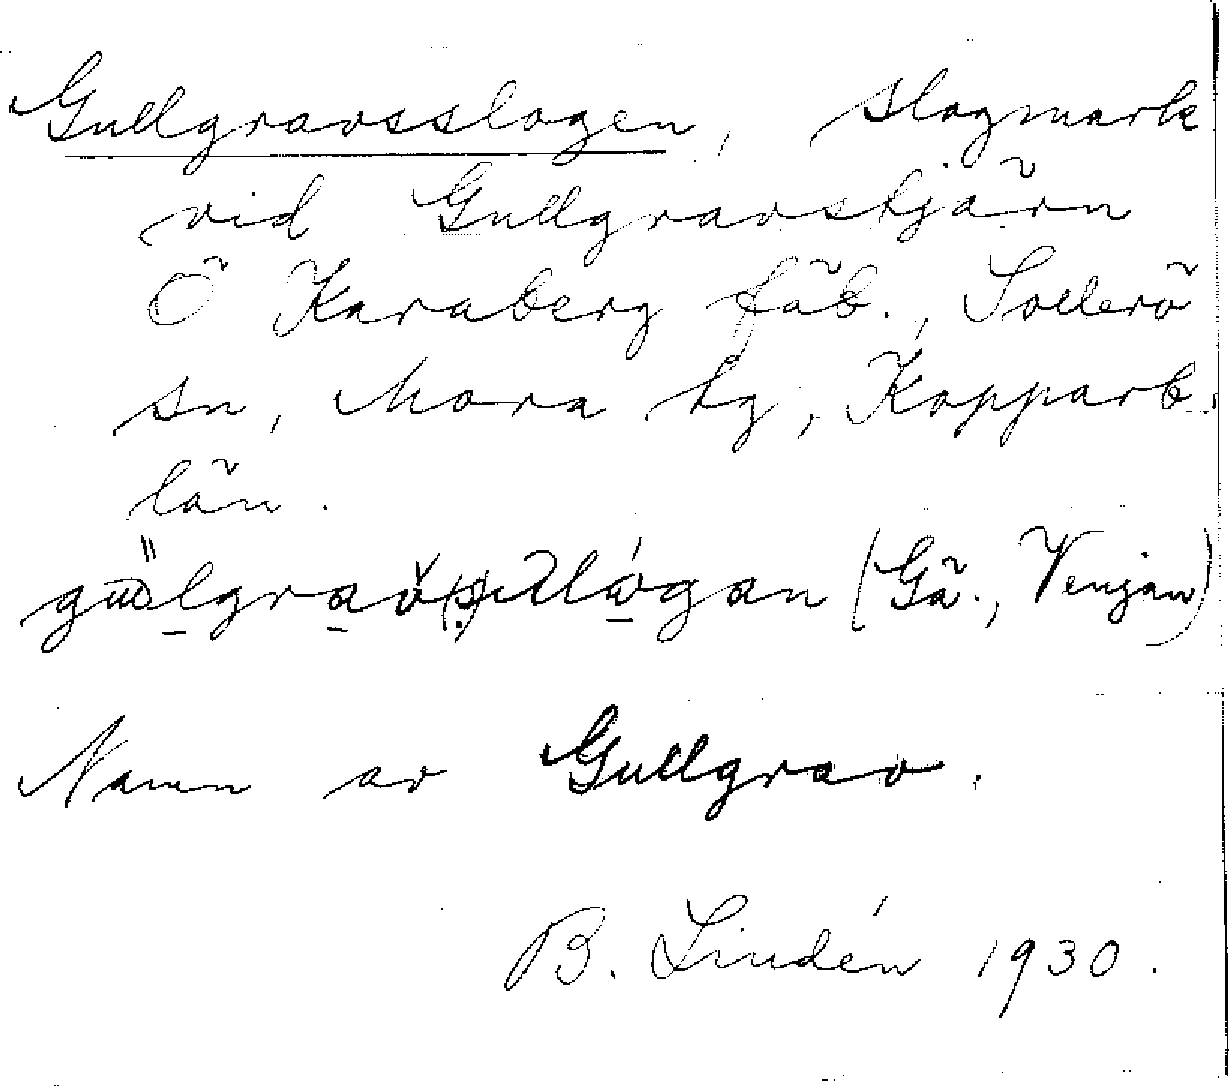 Gullgravsslogen, slogmark
vid Gullgravstjärn
Ö Karaberg fäb., Sollerö
sn, Mora tg, Kopparb.
län.
(Gä., Venjan)
Namn av Gullgrav.
B. Lindén 1930.